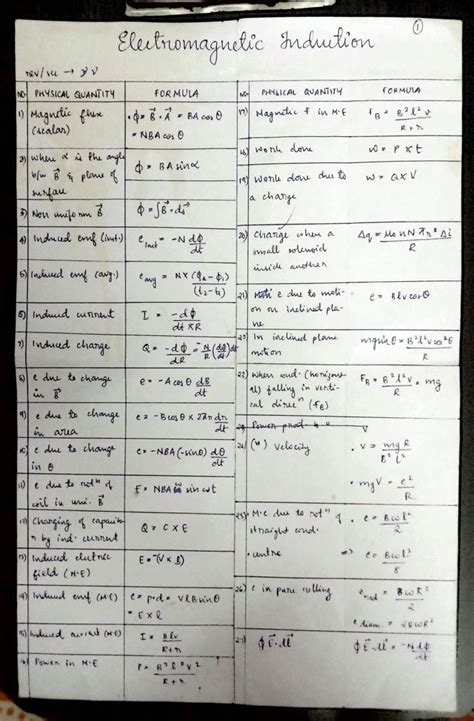 ①
Electromagnetic Induction
NO. PHYSICAL QUANTITY FORMULA
1) Magnetic flux (scalar)
• Φ = B⃗ · A⃗ = BA cos θ
= NBA cos θ
2) where α is the angle b/w B⃗ & plane of surface
Φ = BA sin α
3) Non uniform B⃗
Φ = ∫B⃗·ds⃗
4) Induced emf (inst.)
e inst = -N dΦ/dt
5) Induced emf (avg.)
e avg = N × (Φ₂ - Φ₁)/(t₂ - t₁)
6) Induced current
I = -dΦ/dt × R
7) Induced charge
8) e due to change in B⃗
e = -A cos θ dB/dt
9) e due to change in area
e = -B cos θ × 2πr dr/dt
10) e due to change in θ
e = -NBA (-sin θ) dθ/dt
11) e due to rotⁿ of coil in uni. B⃗
12) Charging of capacitor by ind. current
Q = C × E
13) Induced electric field (M.E)
E = (V × B)
14) Induced emf (M.E)
= E × l
15) Induced current (M.E)
I = Blv/R+r
16) Power in M.E
P = B²l²V²/R+r
NO. PHYSICAL QUANTITY FORMULA
17) Magnetic f in M.E
F_B = B²l²v/R+r
18) Work done
W = P × t
19) Work done due to a charge
W = Q × V
20) Charge when a small solenoid inside another
Δq = μ₀ n N π r² Δi/R
21) e due to motion on inclined plane
e = Blv cos θ
In inclined plane motion
mg sin θ = B²l²v cos²θ/R
When cond. (horizontal) falling in vertical direcⁿ (F_B)
F_B = B²l²V/R = mg
24) (") Velocity
• V = mgR/B²l²
• mgV = e²/R
25) M.E due to rotⁿ of straight cond.
• e = Bωl²/2
• centre ⇒ e = Bωl²/8
26) e in pure rolling
e rad = BωR²/2
e diam. = 2BωR²
27) ∮E⃗·dl⃗
∮E⃗·dl⃗ = -N dΦ/dt